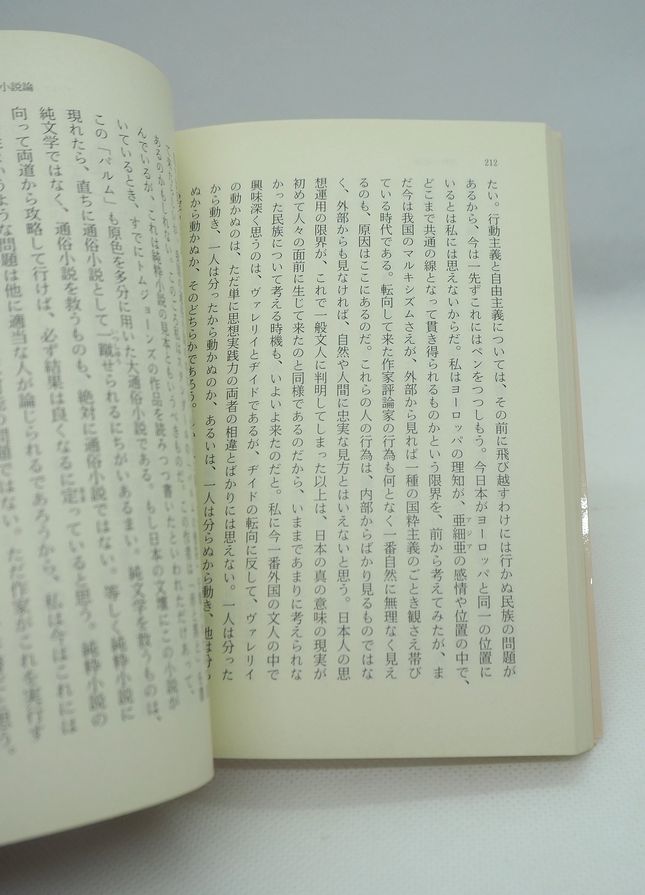 212
たい。行動主義と自由主義については、その前に飛び越すわけには行かぬ民族の問題が
あるから、今は一先ずこれにはペンをつつしもう。今日本がヨーロッパと同一の位置に
いるとは私には思えないからだ。私はヨーロッパの理知が、亜細亜の感情や位置の中で、
アジア
どこまで共通の線となって貫き得られるものかという限界を、前から考えてみたが、ま
だ今は我国のマルキシズムさえが、外部から見れば一種の国粋主義のごとき観さえ帯び
ている時代である。転向して来た作家評論家の行為も何となく一番自然に無理なく見え
るのも、原因はここにあるのだ。これらの人の行為は、内部からばかり見るものではな
く、外部からも見なければ、自然や人間に忠実な見方とはいえないと思う。日本人の思
想運用の限界が、これで一般文人に判明してしまった以上は、日本の真の意味の現実が
初めて人々の面前に生じて来たのと同様であるのだから、いままであまりに考えられな
かった民族について考える時機も、いよいよ来たのだと。私に今一番外国の文人の中で
興味深く思うのは、ヴァレリイとヂイドであるが、ヂイドの転向に反して、ヴァレリイ
の動かぬのは、ただ単に思想実践力の両者の相違とばかりには思えない。一人は分った
から動き、一人は分ったから動かぬのか、あるいは、一人は分らぬから動き、他は分ら
ぬから動かぬか、そのどちらかであろう。
小説論
あるのかもしれ
んでいるが、これは純粋小説の見本ともいうべき
いているとき、すでにトムジョーンズの作品を読みつつ書いたといわれただけあって、
この「パルム」も原色を多分に用いた大通俗小説である。もし日本の文壇にこの小説が
現れたら、直ちに通俗小説として一蹴せられるにちがいあるまい。純文学を救うものは、
純文学ではなく、通俗小説を救うものも、絶対に通俗小説ではない。等しく純粋小説に
向って両道から攻略して行けば、必ず結果は良くなるに定っていると思う。純粋小説の
というような問題は他に適当な人が論じられるであろうから、私は今はこれには
の問題ではない。ただ作家がこれを実行す
に思う。